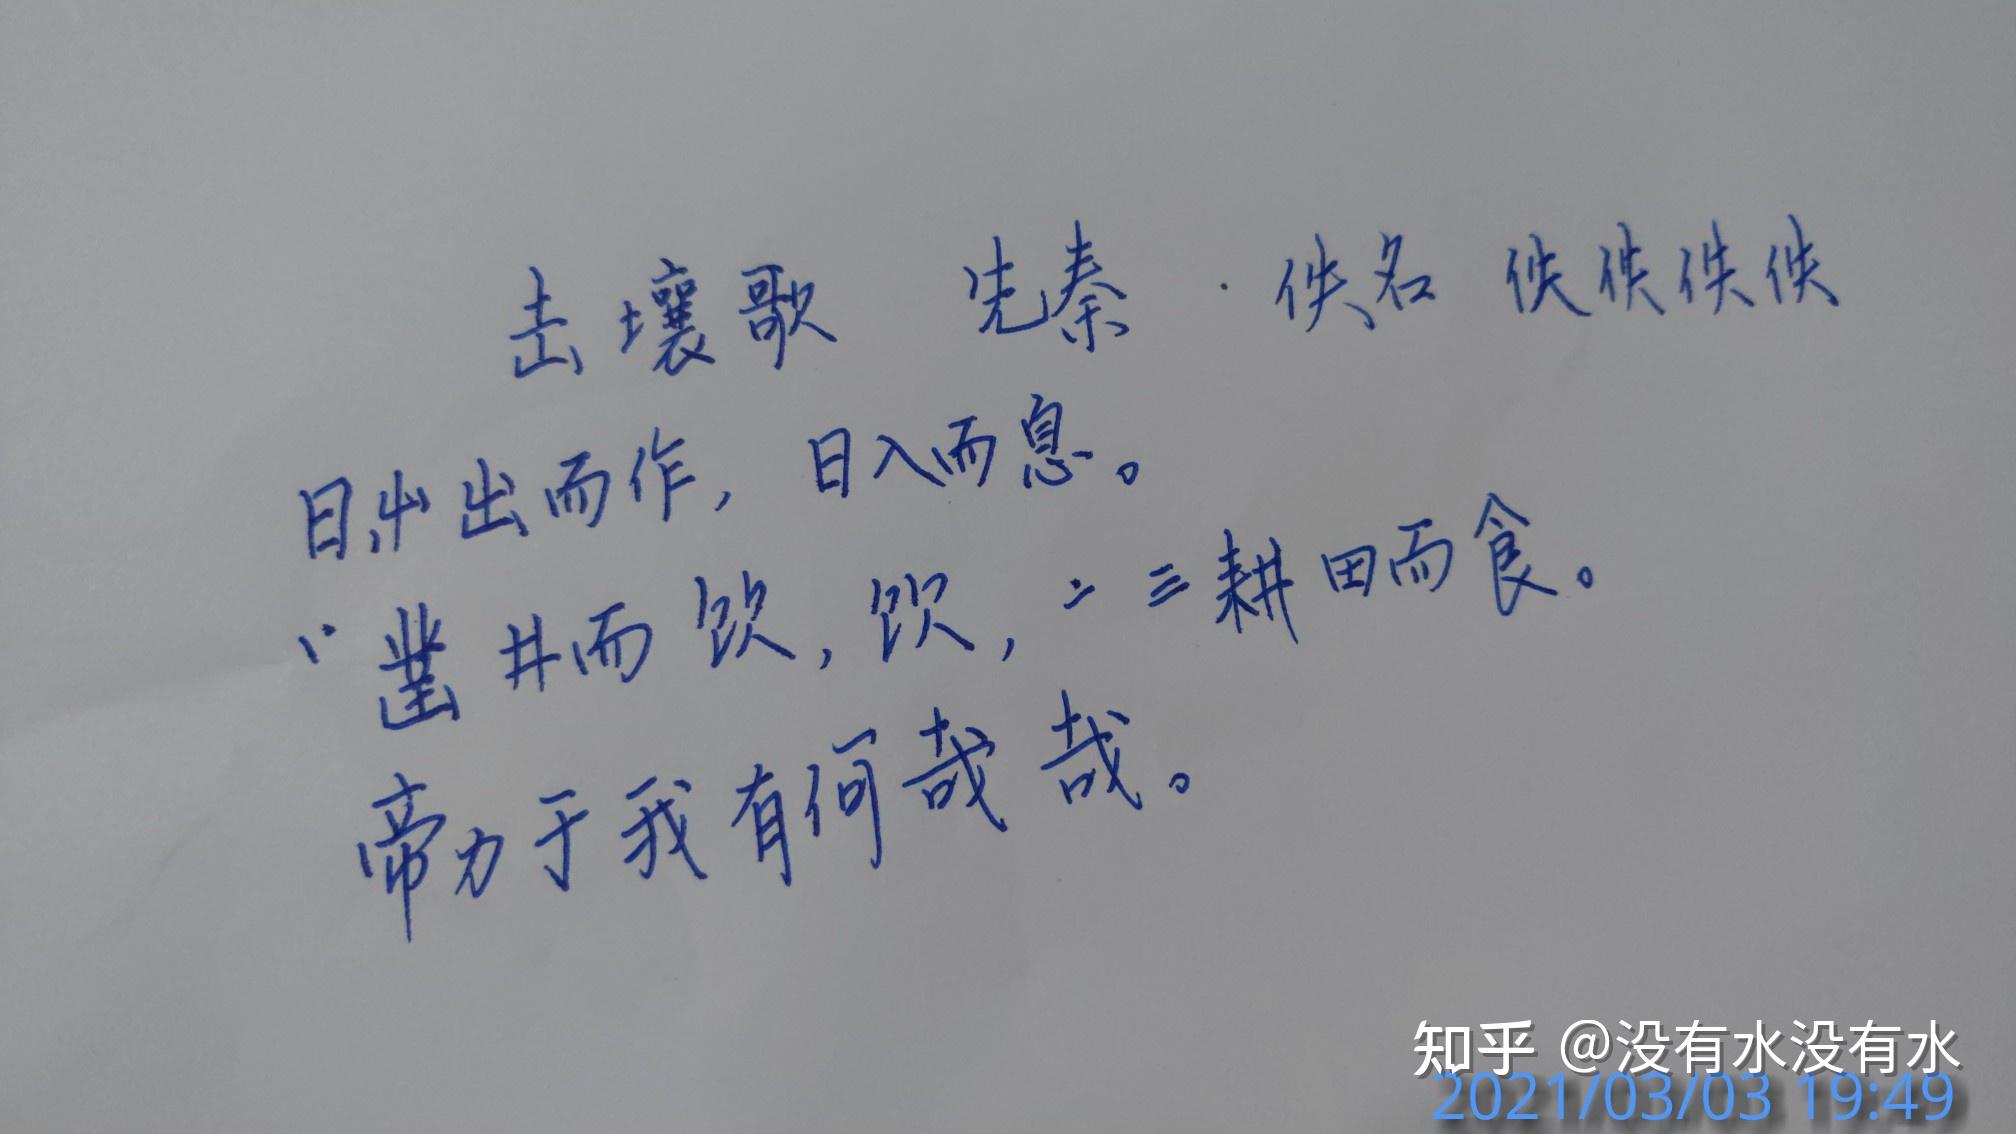 击壤歌 先秦 · 佚名 佚佚佚佚
日出出而作，日入而息。
凿井而饮，饮，二三耕田而食。
帝力于我有何哉哉。
知乎 @没有水没有水
2021/03/03 19:49